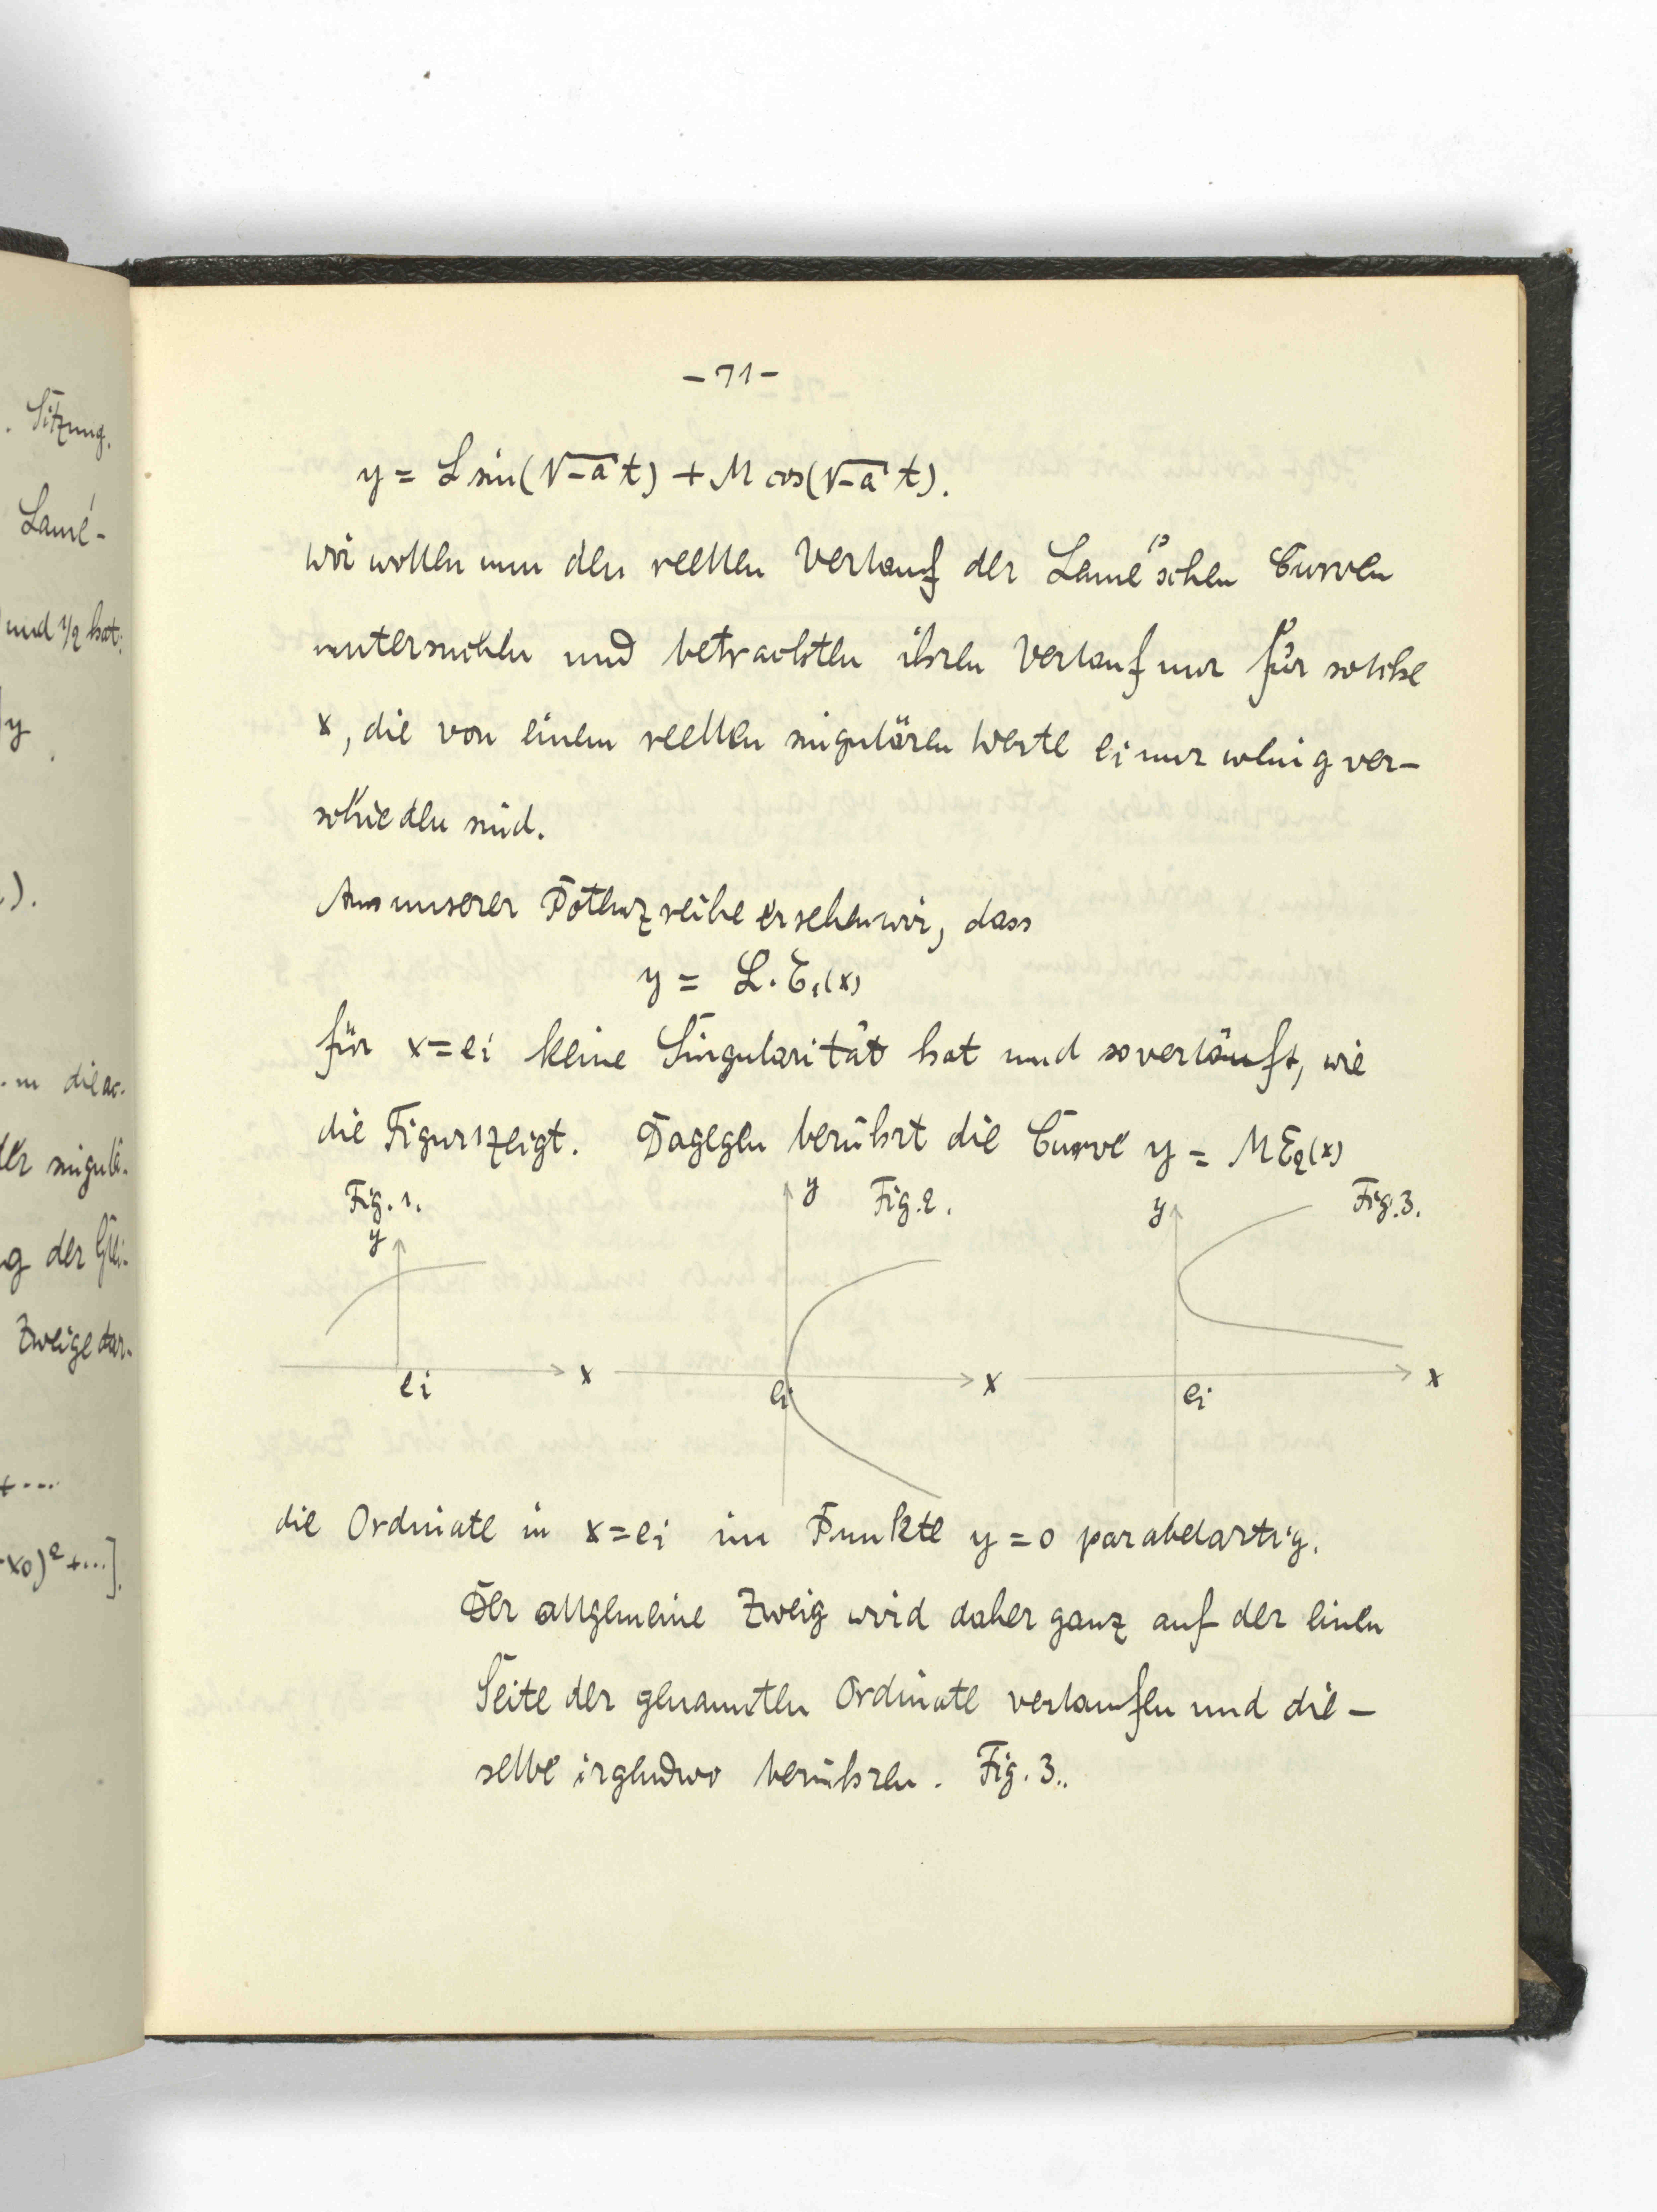 . Sitzung.
Lamé-
und 1/2 hat:
y
).
der singulä-
g der Glei-
Zweige dar-
+ ...
-x0)² + ...].
- 71 -
y = L sin(√-a t) + M cos(√-a t).
Wir wollen nun den reellen Verlauf der Lamé'schen Curven
untersuchen und betrachten ihren Verlauf nur für solche
x, die von einem reellen singulären Werte ei nur wenig ver-
schieden sind.
Aus unserer Potenzreihe ersehen wir, dass
y = L. E1(x)
für x = ei keine Singularität hat und so verläuft, wie
die Figur 1 zeigt. Dagegen berührt die Curve y = M E2(x)
Fig. 1.
y
ei
x
y
Fig. 2.
ei
x
y
Fig. 3.
ei
x
die Ordinate in x = ei im Punkte y = 0 parabelartig.
Der allgemeine Zweig wird daher ganz auf der einen
Seite der genannten Ordinate verlaufen und die-
selbe irgendwo berühren. Fig. 3..